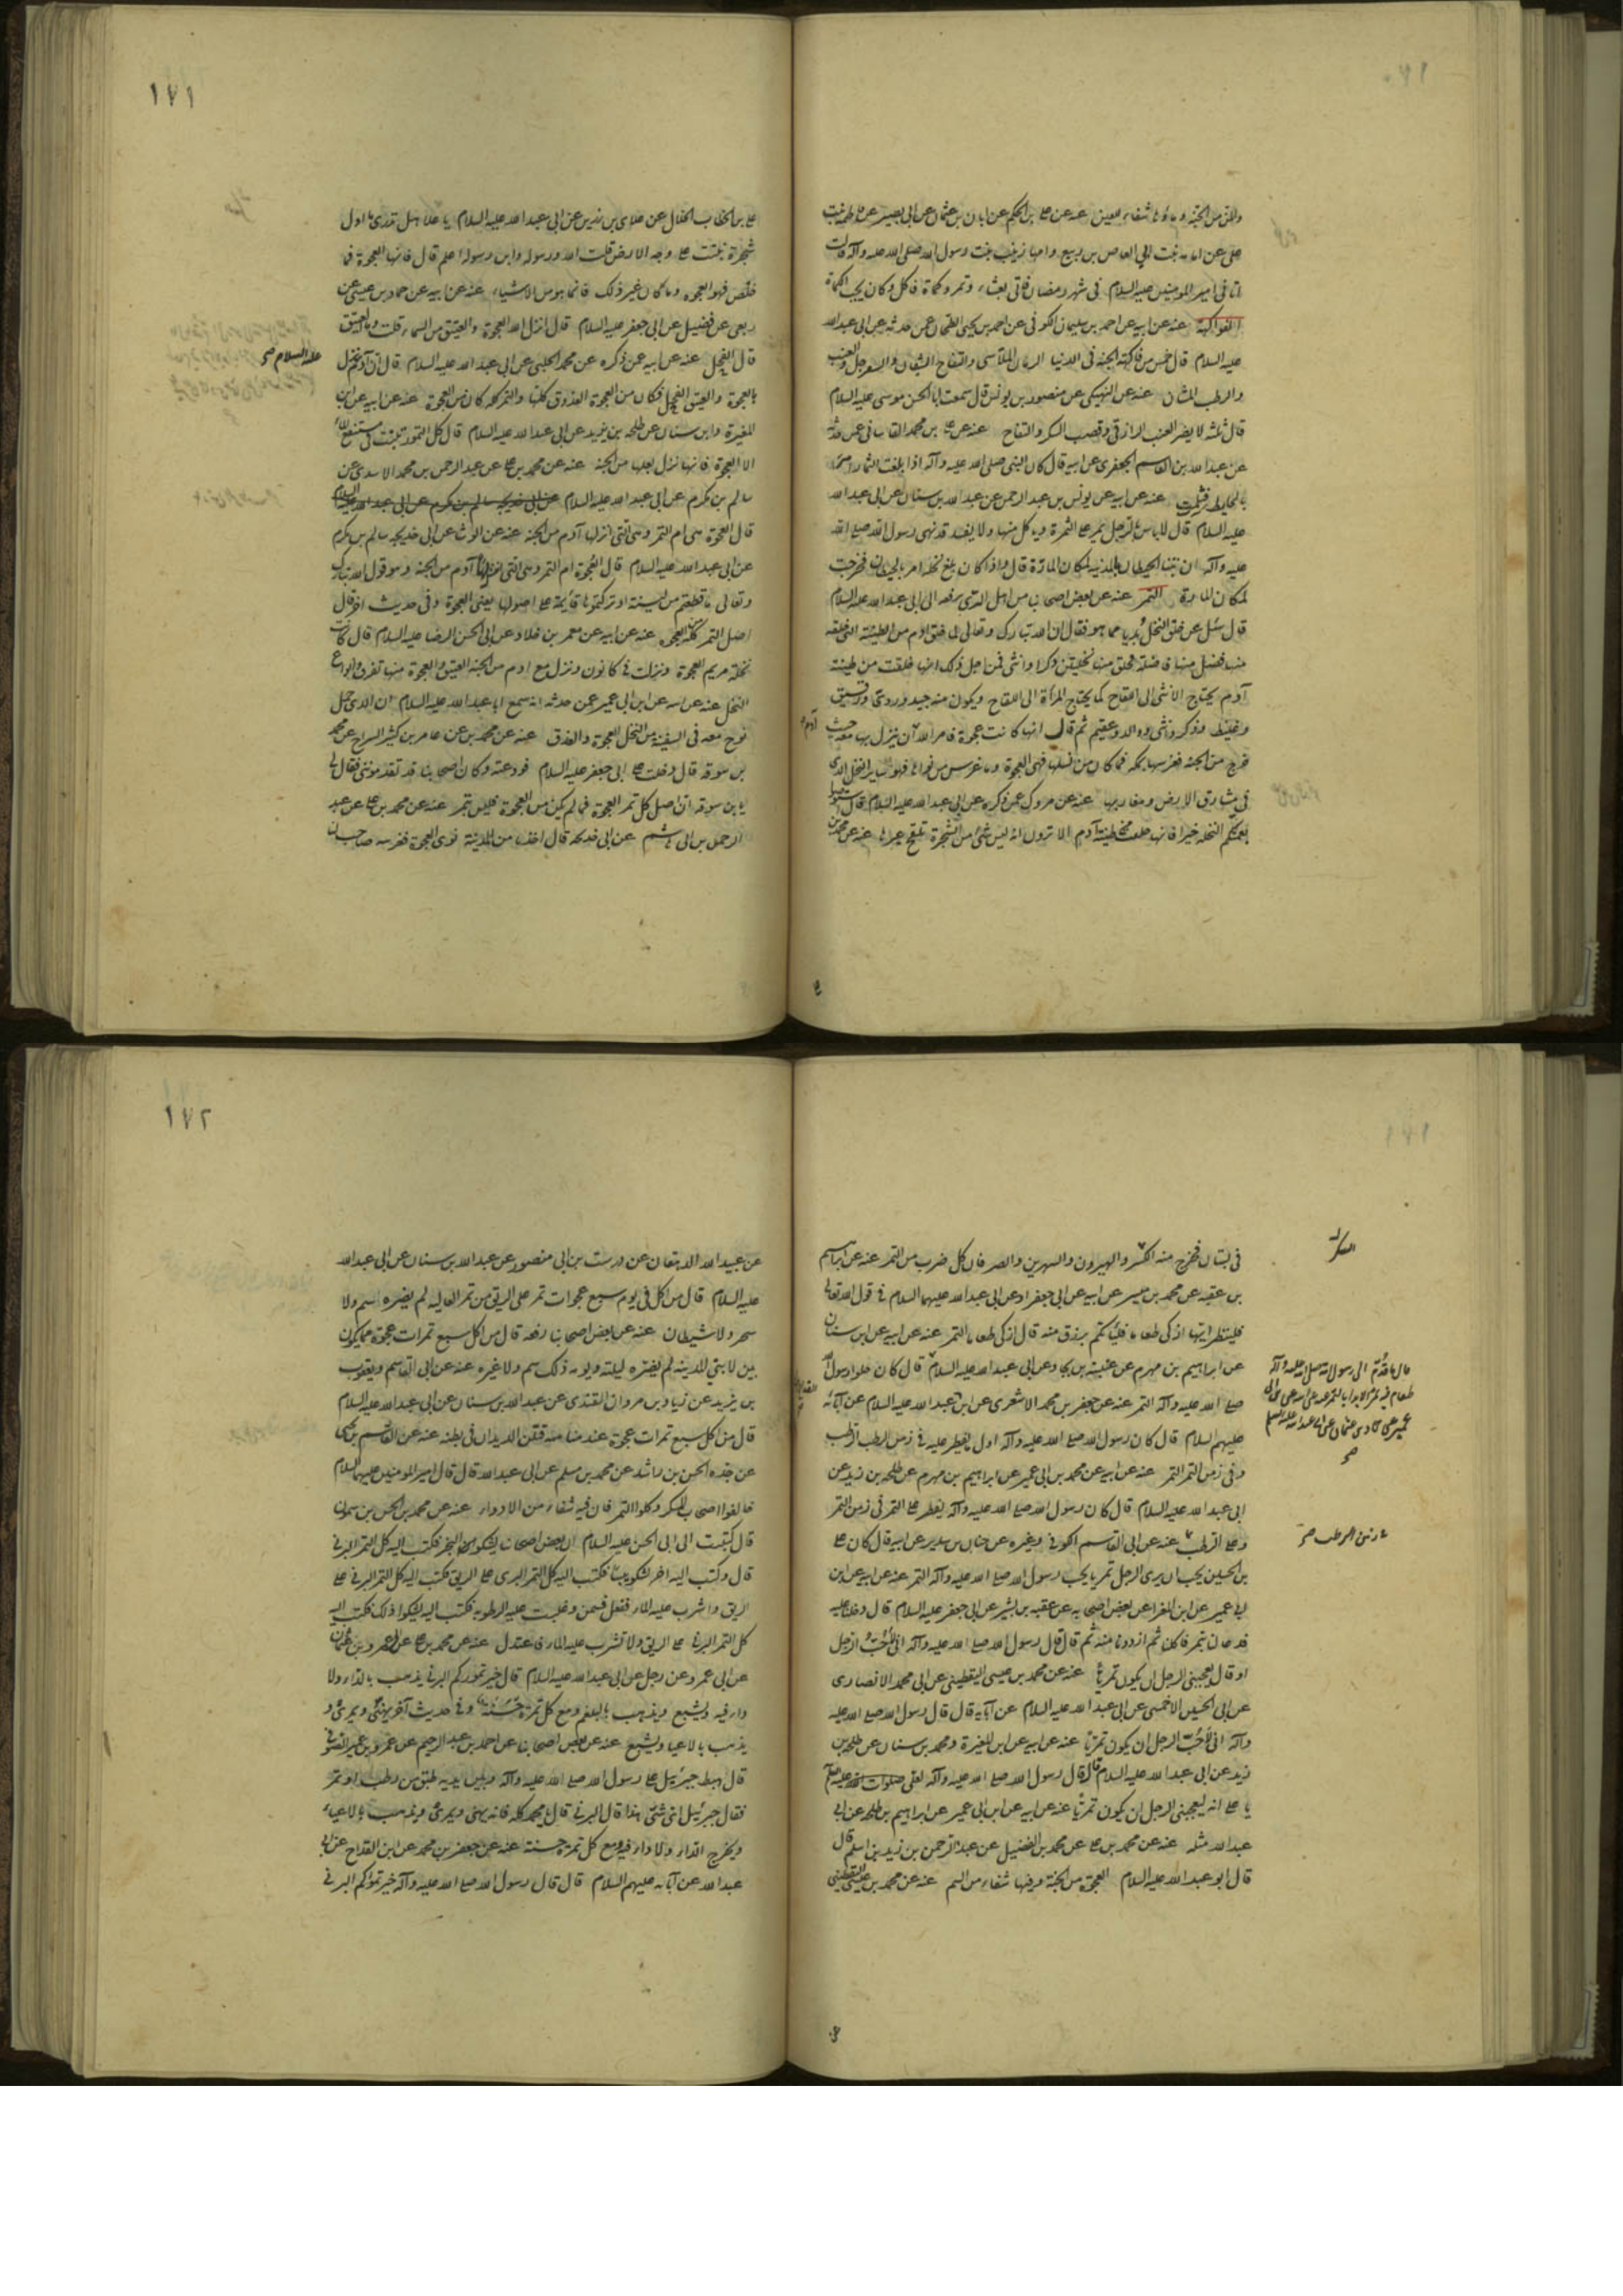 والمن من الجنة وماؤها شفاء للعين عنه عن علي بن الحكم عن ابان بن عثمان عن ابى بصير عن فاطمة بنت
على عن امامة بنت ابى العاص بن ربيع وامها زينب بنت رسول الله صلى الله عليه وآله قالت
اتانى امير المومنين عليه السلام فى شهر رمضان فاتى بعشاء وتمر وكماة فاكل وكان يحب الكماة
الفواكه عنه عن ابيه عن احمد بن سليمان الكوفى عن احمد بن يحيى الطحان عمن حدثه عن ابى عبد الله
عليه السلام قال خمس من فاكهة الجنة فى الدنيا الرمان الملاسى والتفاح الشقان والسفرجل والعنب
والرطب المشان عنه عن النهيكى عن منصور بن يونس قال سمعت ابا الحسن موسى عليه السلام
قال ثلثة لا يضر العنب الرازقى وقصب السكر والتفاح عنه عن علي بن محمد القاسانى عمن حدثه
عن عبد الله بن القاسم الجعفرى عن ابيه قال كان النبى صلى الله عليه وآله اذا بلغت الثمار امر
بالحايط فثلمت عنه عن ابيه عن يونس بن عبد الرحمن عن عبد الله بن سنان عن ابى عبد الله
عليه السلام قال لا باس بالرجل يمر على الثمرة وياكل منها ولا يفسد قد نهى رسول الله صلى الله
عليه وآله ان تبنى الحيطان بالمدينة لمكان المارة قال واذا كان بلغ نخله امر بالحيطان فخرجت
لمكان المارة التمر عنه عن بعض اصحابنا من اهل الرى رفعه الى ابى عبد الله عليه السلام
قال سئل عن خلق النخل بديا مما هو فقال ان الله تبارك وتعالى لما خلق آدم من الطينة التى خلقه
منها فضل منها فضلة فخلق منها نخلتين ذكرا وانثى فمن اجل ذلك انها خلقت من طينة
آدم يحتاج الانثى الى اللقاح كما يحتاج المرأة الى اللقاح ويكون منه جيد وردى ودقيق
وغليظ وذكر وانثى ووالد وعقيم ثم قال انها كانت عجوة فامر الله آدم ان ينزل بها معه حيث
خرج من الجنة فغرسها بمكة فما كان من نسلها فهى العجوة وما غرس من نواها فهو ساير النخل الذى
فى مشارق الارض ومغاربها عنه عن مروك عمن ذكره عن ابى عبد الله عليه السلام قال استوصوا
بعمتكم النخلة خيرا فانها خلقت من طينة آدم الا ترون انه ليس شئ من الشجرة تلقح غيرها عنه عن محمد بن
١٧١
علي بن الخطاب الخلال عن علاء بن رزين عن ابى عبد الله عليه السلام يا علا هل تدرى ما اول
شجرة نبتت على وجه الارض قلت الله ورسوله وابن رسوله اعلم قال فانها العجوة فما
خلص فهو العجوة وما كان غير ذلك فانما هو من الاشياء عنه عن ابيه عن حماد بن عيسى عن
ربعى عن فضيل عن ابى جعفر عليه السلام قال انزل الله العجوة والعتيق من السماء قلت وما العتيق
قال الفحل عنه عن ابيه عمن ذكره عن محمد الحلبى عن ابى عبد الله عليه السلام قال ان آدم نزل
عليه السلام صح
بالعجوة والعتيق الفحل فكان من العجوة العذوق كلها والتمر كله كان من العجوة عنه عن ابيه عن ابن
المغيرة وابن سنان عن طلحة بن زيد عن ابى عبد الله عليه السلام قال كل التمور تنبت فى مستنقع الماء
الا العجوة فانها نزل بعلها من الجنة عنه عن محمد بن علي عن عبد الرحمن بن محمد الاسدى عن
سالم بن مكرم عن ابى عبد الله عليه السلام عن ابى خديجة سالم بن مكرم عن ابى عبد الله عليه السلام
قال العجوة هى ام التمر وهى التى انزلها آدم من الجنة عنه عن الوشا عن ابى خديجة سالم بن مكرم
عن ابى عبد الله عليه السلام قال العجوة ام التمر وهى التى انزل بها آدم من الجنة وهو قول الله تبارك
وتعالى ما قطعتم من لينة او تركتموها قائمة على اصولها يعنى العجوة وفى حديث آخر قال
اصل التمر كله العجوة عنه عن ابيه عن معمر بن خلاد عن ابى الحسن الرضا عليه السلام قال كانت
نخلة مريم العجوة ونزلت فى كانون ونزل مع آدم من الجنة العتيق والعجوة منها تفرق انواع
النخل عنه عن ابيه عن ابن ابى عمير عمن حدثه انه سمع ابا عبد الله عليه السلام ان الذى حمل
نوح معه فى السفينة من النخل العجوة والعذق عنه عن محمد بن علي عن عامر بن كثير السراج عن محمد
بن سوقة قال دخلت على ابى جعفر عليه السلام فودعته وكان اصحابنا قد تقدمونى فقال لى
يا بن سوقة ان اصل كل تمر العجوة فما لم يكن من العجوة فليس بتمر عنه عن محمد بن علي عن عبد
الرحمن بن ابى هاشم عن ابى خديجة قال اخذنا من المدينة نوى العجوة فغرسه صاحب لنا
فى بستان فخرج منه السكر والهيرون والشهريز والصرفان وكل ضرب من التمر عنه عن ابراهيم
السكر
بن عقبة عن محمد بن ميسر عن ابيه عن ابى جعفر او عن ابى عبد الله عليهما السلام فى قول الله تعالى
فلينظر ايها ازكى طعاما فلياتكم برزق منه قال ازكى طعاما التمر عنه عن ابيه عن ابن سنان
عن ابراهيم بن مهزم عن عنبسة بن بجاد عن ابى عبد الله عليه السلام قال كان حلوا رسول الله
قال ما قدم الى رسول الله صلى الله عليه وآله
طعام فيه تمر الا بدا بالتمر عنه عن ابيه عن ابن ابى
عمير عن حماد بن عثمان عن ابى عبد الله عليه السلام
صح
صلى الله عليه وآله التمر عنه عن جعفر بن محمد الاشعرى عن ابن القداح عن ابى عبد الله عليه السلام عن آبائه
عليهم السلام قال كان رسول الله صلى الله عليه وآله اول ما يفطر عليه فى زمن الرطب الرطب
وفى زمن التمر التمر عنه عن ابيه عن محمد بن ابى عمير عن ابراهيم بن مهزم عن طلحة بن زيد عن
ابى عبد الله عليه السلام قال كان رسول الله صلى الله عليه وآله يفطر على التمر فى زمن التمر
وعلى الرطب عنه عن ابى القاسم الكوفى وغيره عن حنان بن سدير عن ابيه قال كان علي
فى زمن الرطب صح
بن الحسين يحب ان يرى الرجل تمريا يحب رسول الله صلى الله عليه وآله التمر عنه عن ابيه عن ابن
ابى عمير عن ابن المغرا عن بعض اصحابه عن عقبة بن بشير عن ابى جعفر عليه السلام قال دخلنا عليه
فدعا بتمر فاكلنا ثم ازددنا منه ثم قال قال رسول الله صلى الله عليه وآله انى لاحب الرجل
او قال يعجبنى الرجل ان يكون تمريا عنه عن محمد بن عيسى اليقطينى عن ابى محمد الانصارى
عن ابى الحسين الاحمسى عن ابى عبد الله عليه السلام عن آبائه قال قال رسول الله صلى الله عليه
وآله انى لاحب الرجل ان يكون تمريا عنه عن ابيه عن ابن المغيرة ومحمد بن سنان عن طلحة بن
زيد عن ابى عبد الله عليه السلام قال قال رسول الله صلى الله عليه وآله لعلى صلوات الله عليه
يا علي انه ليعجبنى الرجل ان يكون تمريا عنه عن ابيه عن ابن ابى عمير عن ابراهيم بن طلحة عن ابى
عبد الله مثله عنه عن محمد بن علي عن محمد بن الفضيل عن عبد الرحمن بن زيد بن اسلم قال
قال ابو عبد الله عليه السلام العجوة من الجنة وفيها شفاء من السم عنه عن محمد بن عيسى اليقطينى
١٧٢
عن عبيد الله الدهقان عن درست بن ابى منصور عن عبد الله بن سنان عن ابى عبد الله
عليه السلام قال من اكل فى يوم سبع عجوات تمر على الريق من تمر العالية لم يضره سم ولا
سحر ولا شيطان عنه عن بعض اصحابنا رفعه قال من اكل سبع تمرات عجوة مما يكون
بين لابتى المدينة لم يضره ليلته ويومه ذلك سم ولا غيره عنه عن ابى القاسم ويعقوب
بن يزيد عن زياد بن مروان القندى عن عبد الله بن سنان عن ابى عبد الله عليه السلام
قال من اكل سبع تمرات عجوة عند منامه قتلن الديدان فى بطنه عنه عن القاسم بن يحيى
عن جده الحسن بن راشد عن محمد بن مسلم عن ابى عبد الله قال قال امير المومنين عليهما السلام
خالفوا اصحاب السكر وكلوا التمر فان فيه شفاء من الادواء عنه عن محمد بن الحسن بن شمون
قال كتبت الى ابى الحسن عليه السلام ان بعض اصحابنا يشكو البخر فكتب اليه كل التمر البرنى
قال وكتب اليه آخر يشكو يبسا فكتب اليه كل التمر البرنى على الريق فكتب اليه كل التمر البرنى على
الريق واشرب عليه الماء ففعل فسمن وغلبت عليه الرطوبة فكتب اليه يشكوا ذلك فكتب اليه
كل التمر البرنى على الريق ولا تشرب عليه الماء فاعتدل عنه عن محمد بن علي عن عمرو بن عثمان
عن ابى عمرو عن رجل عن ابى عبد الله عليه السلام قال خير تموركم البرنى يذهب بالداء ولا
داء فيه ويشبع ويذهب بالبلغم ومع كل تمرة حسنة وفى حديث آخر يهنئ ويمرئ و
يذهب بالاعياء ويشبع عنه عن بعض اصحابنا عن احمد بن عبد الرحيم عن عمرو بن عمير الصوفى
قال هبط جبرئيل على رسول الله صلى الله عليه وآله وبين يديه طبق من رطب او تمر
فقال جبرئيل اى شئ هذا قال البرنى قال يا محمد كله فانه يهنئ ويمرئ ويذهب بالاعياء
ويخرج الداء ولا داء فيه ومع كل تمرة حسنة عنه عن جعفر بن محمد عن ابن القداح عن ابى
عبد الله عن آبائه عليهم السلام قال قال رسول الله صلى الله عليه وآله خير تموركم البرنى